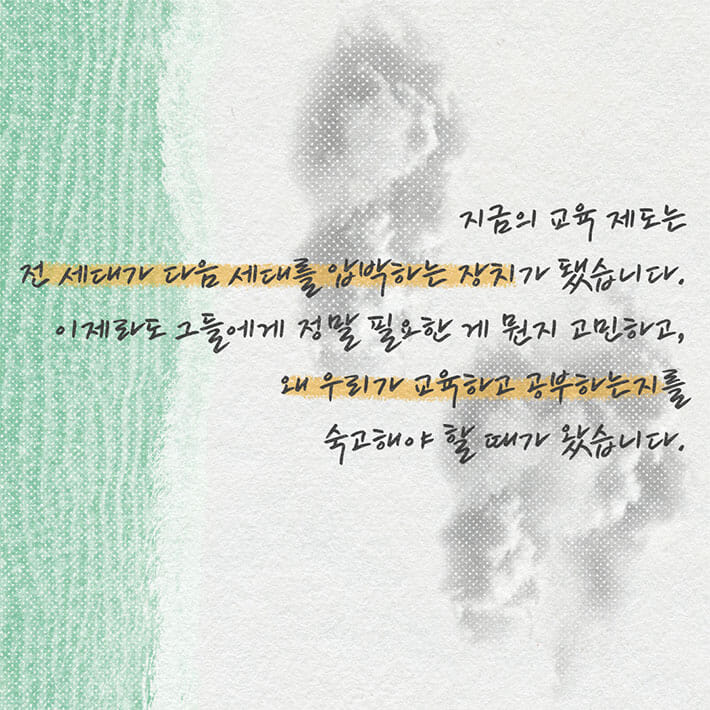 지금의 교육 제도는
전 세대가 다음 세대를 압박하는 장치가 됐습니다.
이제라도 그들에게 정말 필요한 게 뭔지 고민하고,
왜 우리가 교육하고 공부하는지를
숙고해야 할 때가 왔습니다.